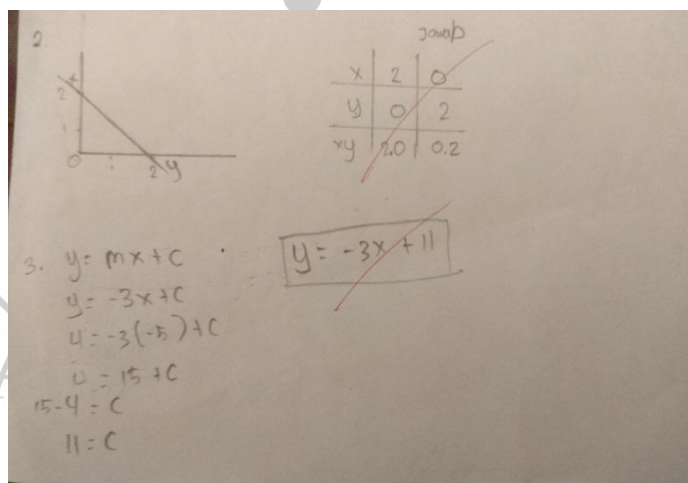 2.
x
2
1
0
1
2
y
Jawab
x 2 0
y 0 2
xy 2.0 0.2
3. y = mx + c
y = -3x + c
4 = -3(-5) + c
= 15 + c
15 - 4 = c
11 = c
y = -3x + 11